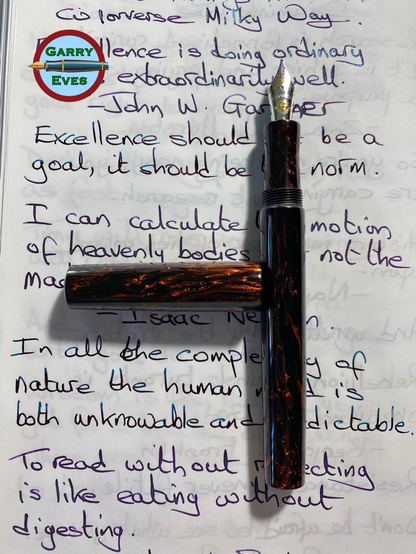 Colorverse Milky Way.
GARRY
EVES
Excellence is doing ordinary
extraordinarily well.
-John W. Gardner
Excellence should be a
goal, it should be norm.
I can calculate motion
of heavenly bodies not the
- Isaac Newton.
In all the complexity of
nature the human is
both unknowable and predictable.
To read without reflecting
is like eating without
digesting.